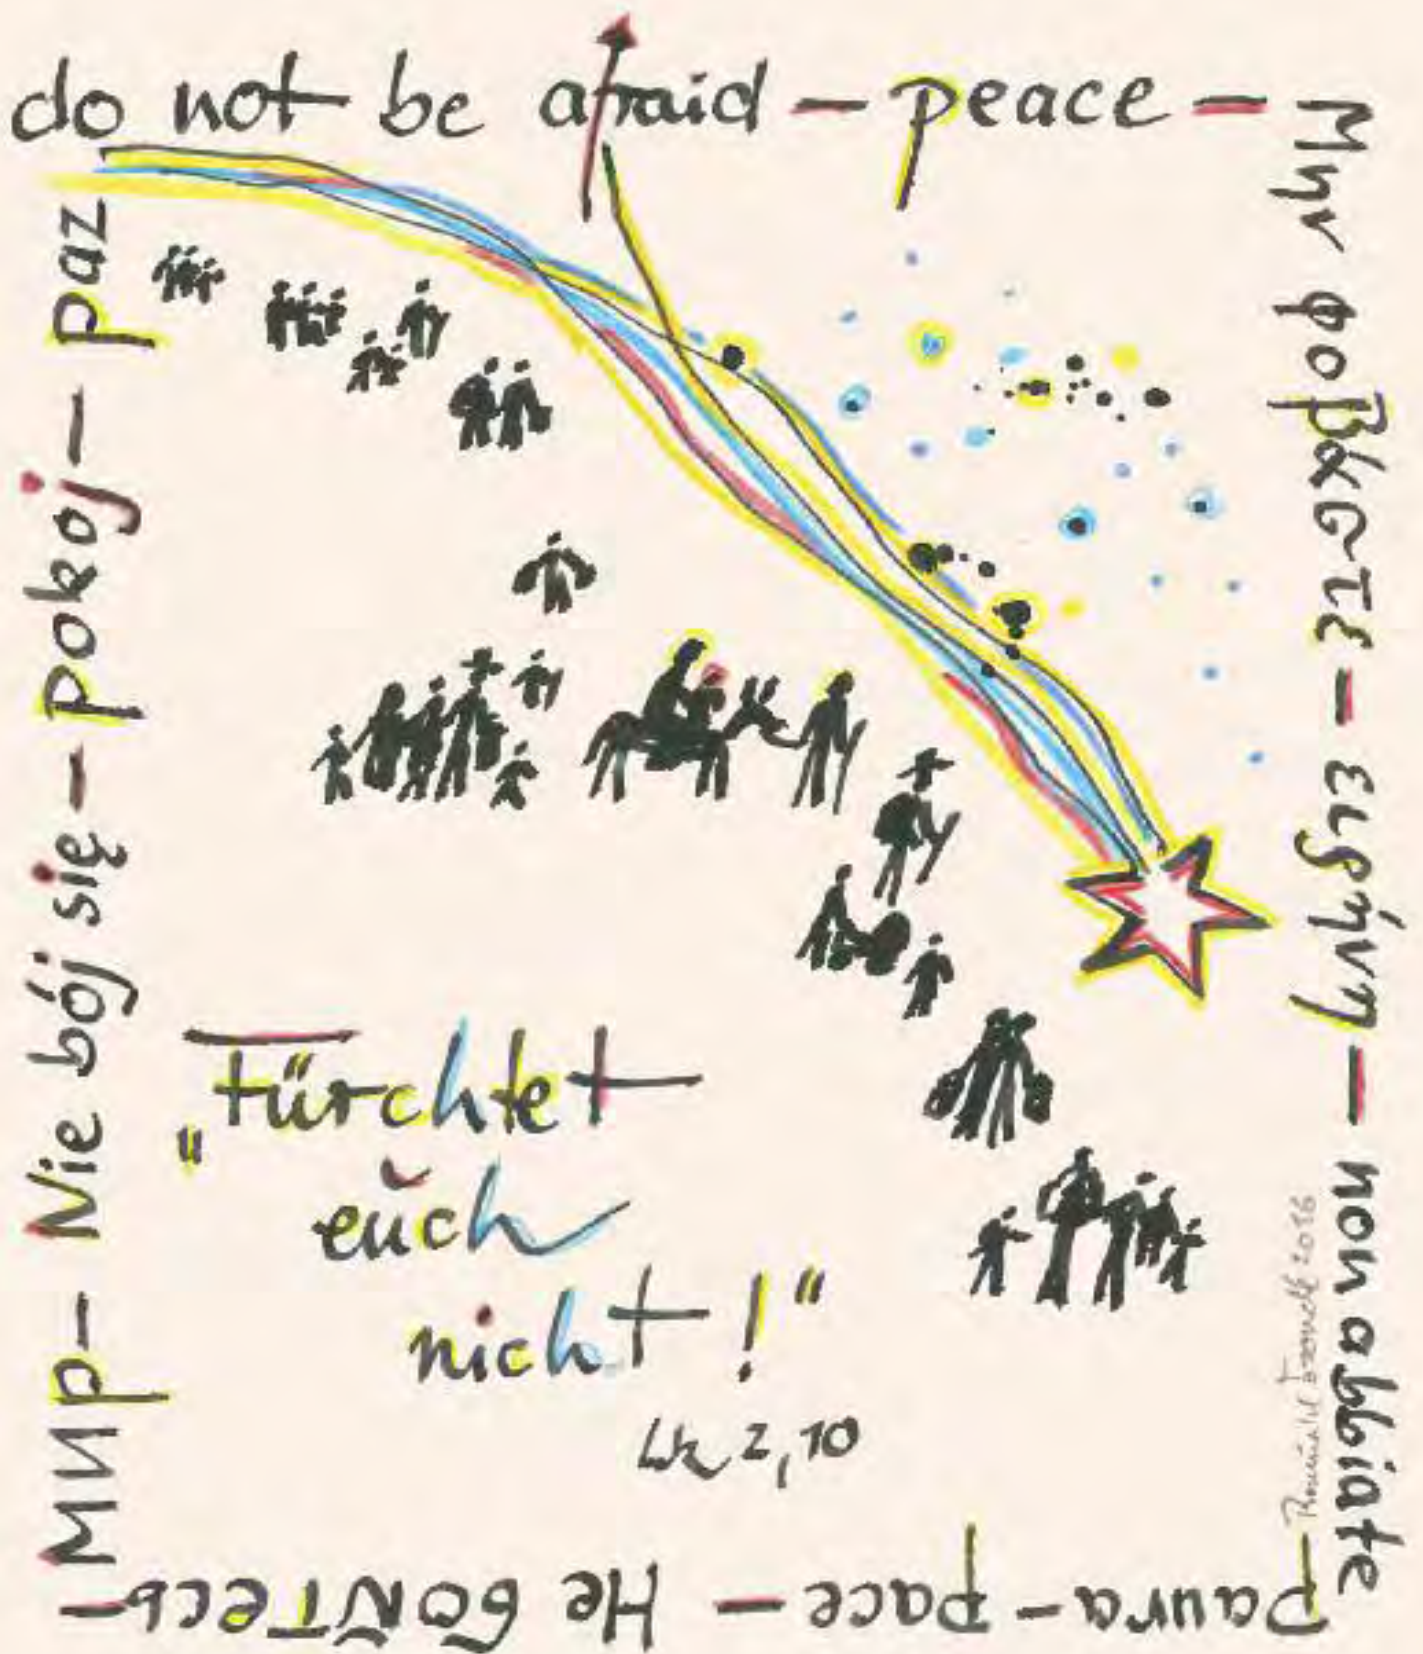 do not be afraid – peace –
Μην φοβαστε – ειρήνη – non abbiate
paura – pace – Не бойтесь –
мир – Nie bój się – pokoj – paz
„Fürchtet
euch
nicht!“
Lk 2,10
2016